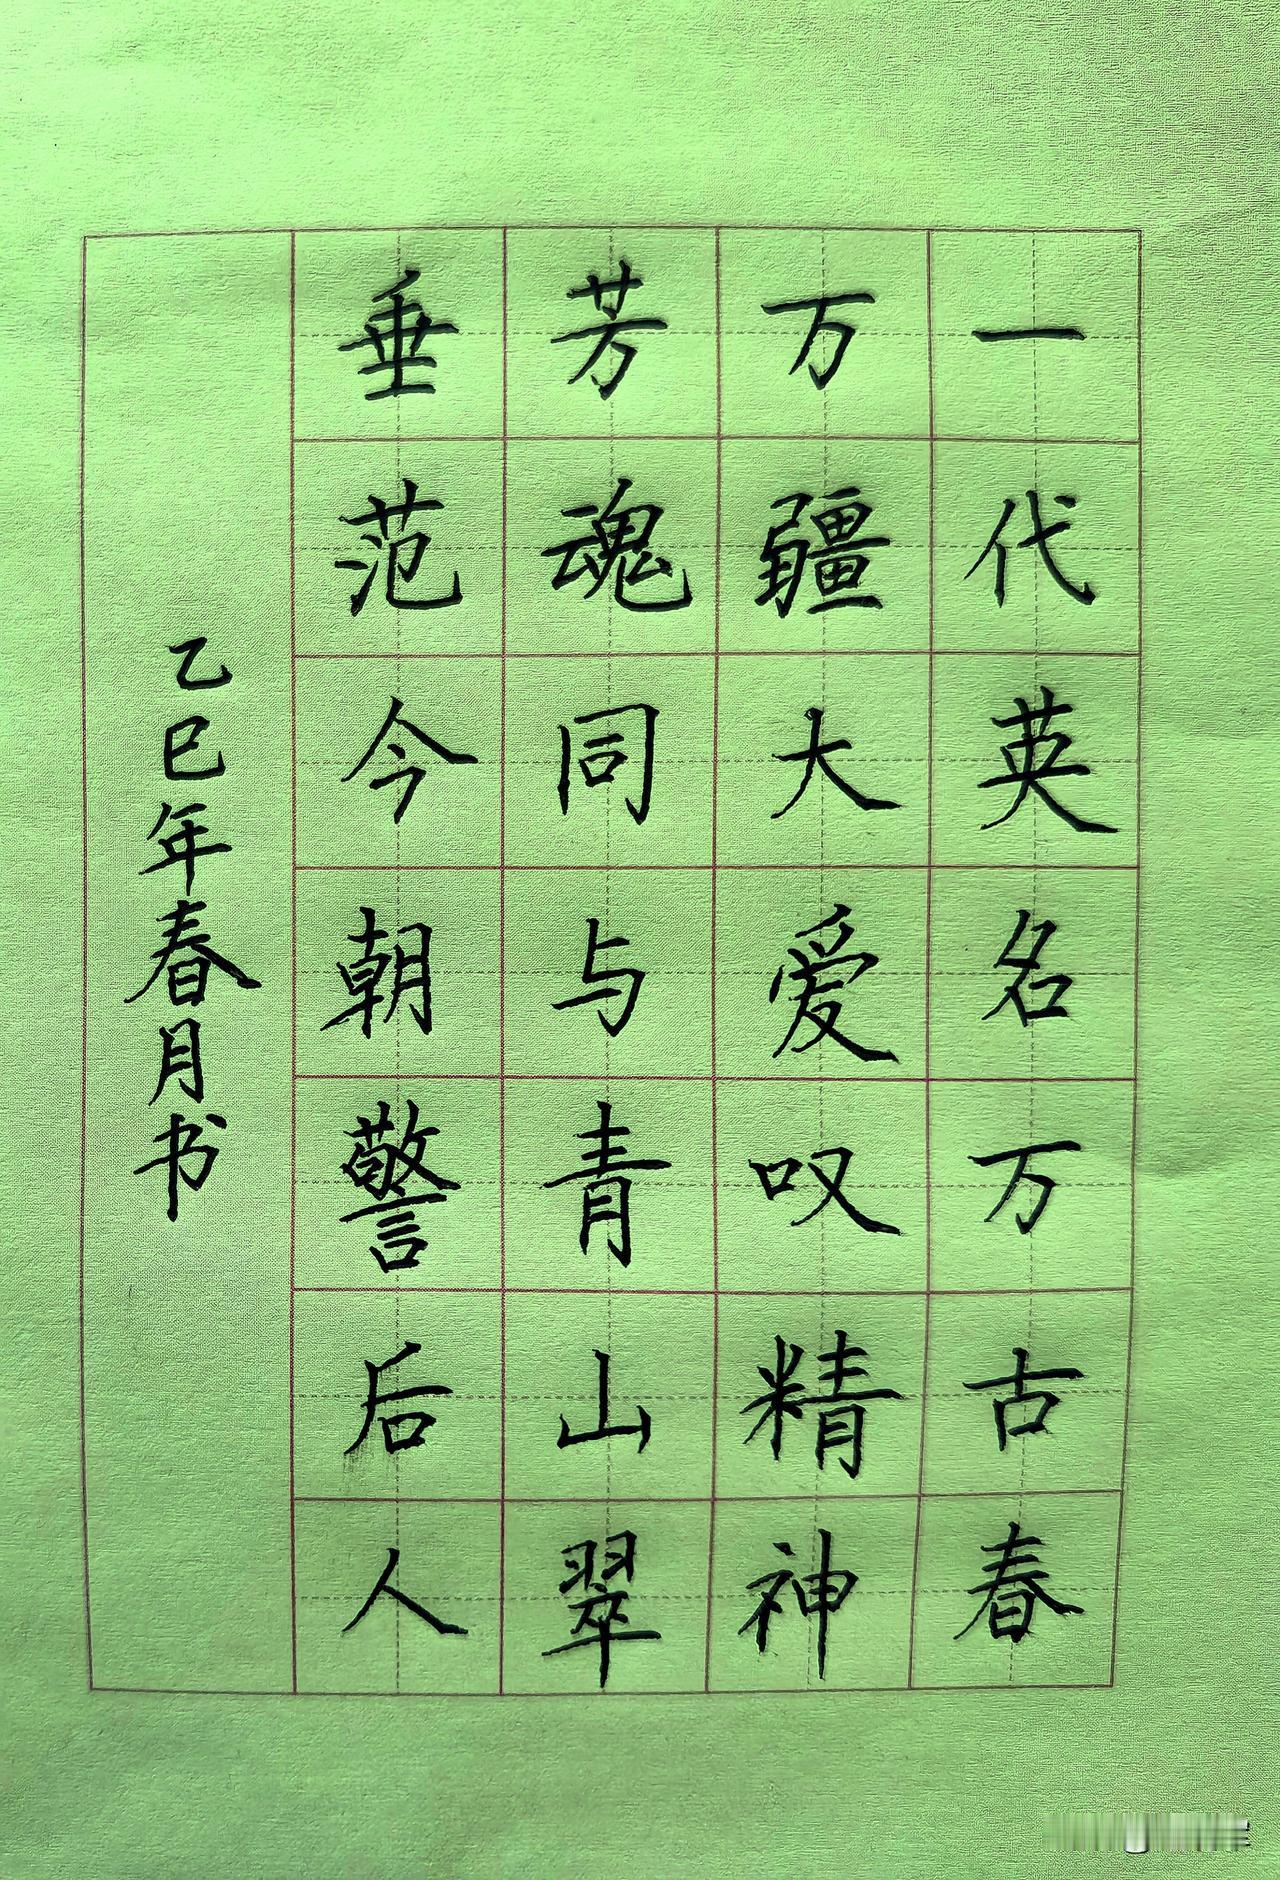 一代英名万古春
万疆大爱叹精神
芳魂同与青山翠
垂范今朝警后人
乙巳年春月书